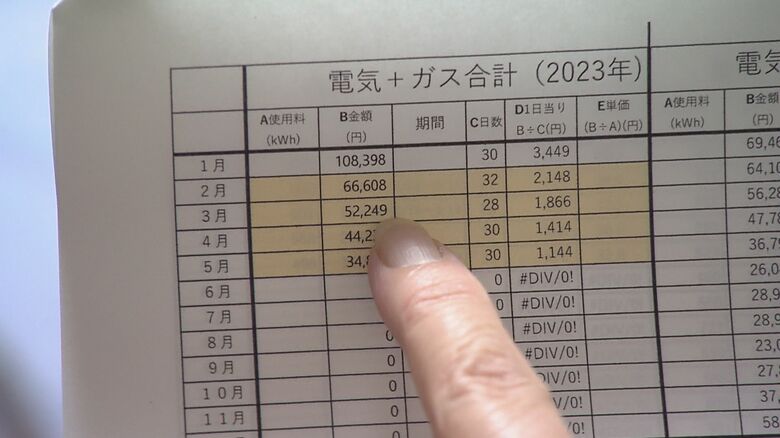 電気＋ガス合計（2023年） 電気
A使用料(kWh) B金額(円) 期間 C日数 D1日当り B÷C(円) E単価(B÷A)(円) A使用料(kWh) B金(円
1月 108,398 30 3,449 69,46
2月 66,608 32 2,148 64,10
3月 52,249 28 1,866 56,28
4月 44,2 30 1,414 47,78
5月 34, 30 1,144 36,79
6月 0 #DIV/0! 26,0
7月 0 #DIV/0! 28,9
8月 0 #DIV/0! 28,9
9月 0 #DIV/0! 23,0
10月 0 DIV/0! 27,
11月 0 /0! 37,
58